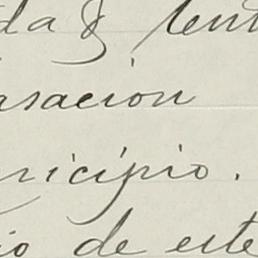 asacion
nicipio.
io de este